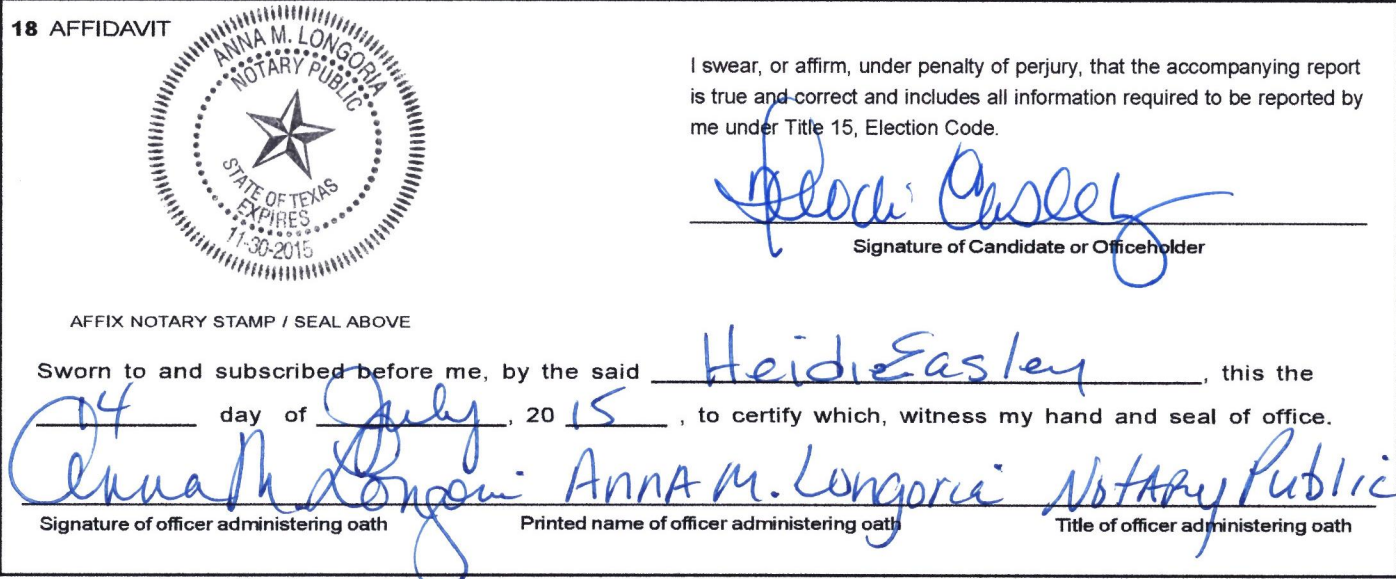 18 AFFIDAVIT
ANNA M. LONGORIA
NOTARY PUBLIC
STATE OF TEXAS
EXPIRES
11-30-2015
I swear, or affirm, under penalty of perjury, that the accompanying report
is true and correct and includes all information required to be reported by
me under Title 15, Election Code.
Heidi Easley
Signature of Candidate or Officeholder
AFFIX NOTARY STAMP / SEAL ABOVE
Sworn to and subscribed before me, by the said Heidi Easley, this the
14 day of July, 20 15, to certify which, witness my hand and seal of office.
Anna M Longoria ANNA M. Longoria NotARy Public
Signature of officer administering oath Printed name of officer administering oath Title of officer administering oath